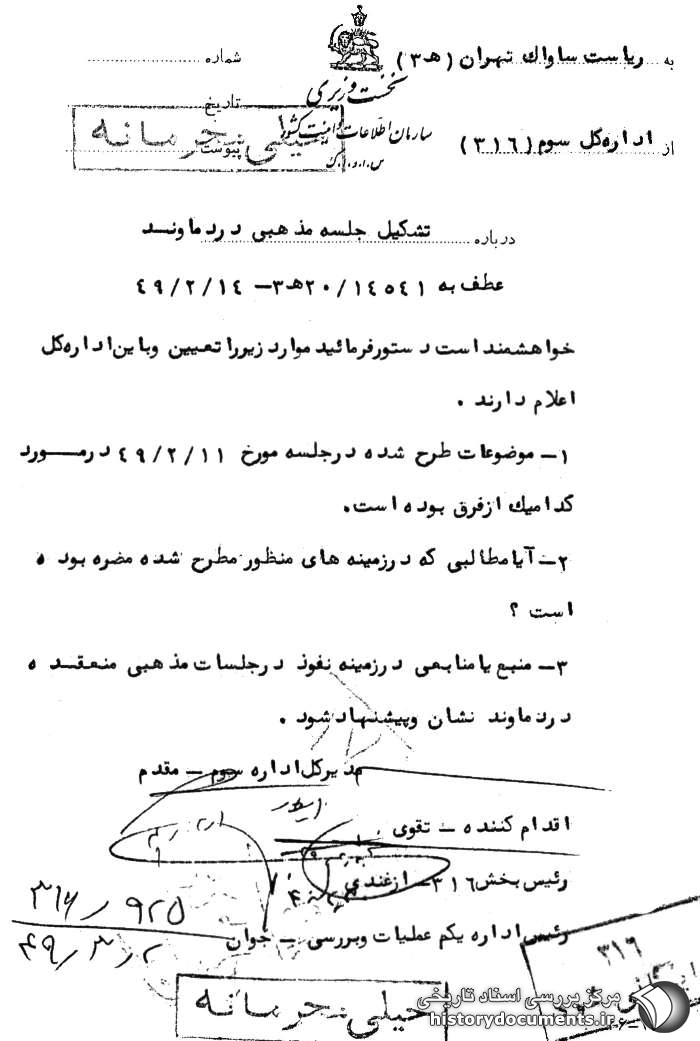 به ریاست ساواک تهران (هـ ۳)
شماره
نخست وزیری
تاریخ
سازمان اطلاعات و امنیت کشور
از اداره کل سوم (۳۱۶)
پیوست
س.ا.و.ا.ک
خیلی محرمانه
درباره تشکیل جلسه مذهبی در دماوند
عطف به ۲۰/۱۴۵۴۱هـ۳ – ۴۹/۲/۱۴
خواهشمند است دستورفرمائید موارد زیررا تعیین وباین اداره کل
اعلام دارند .
۱– موضوعات طرح شده درجلسه مورخ ۴۹/۲/۱۱ درمــورد
کدامیک ازفرق بوده است.
۲– آیا مطالبی که درزمینه های منظور مطرح شده مضره بوده
است ؟
۳– منبع یا منابعی درزمینه نفوذ درجلسات مذهبی منعقــده
دردماوند نشان وپیشنهاد شود .
مدیرکل اداره سوم – مقدم
اقدام کننده – تقوی
رئیس بخش ۳۱۶– ازغندی
رئیس اداره یکم عملیات وبررسی – جوان
۳۱۶ / ۹۲۵
۴۹/۳/۲
۳۱۶
خیلی محرمانه
مرکز بررسی اسناد تاریخی
historydocuments.ir